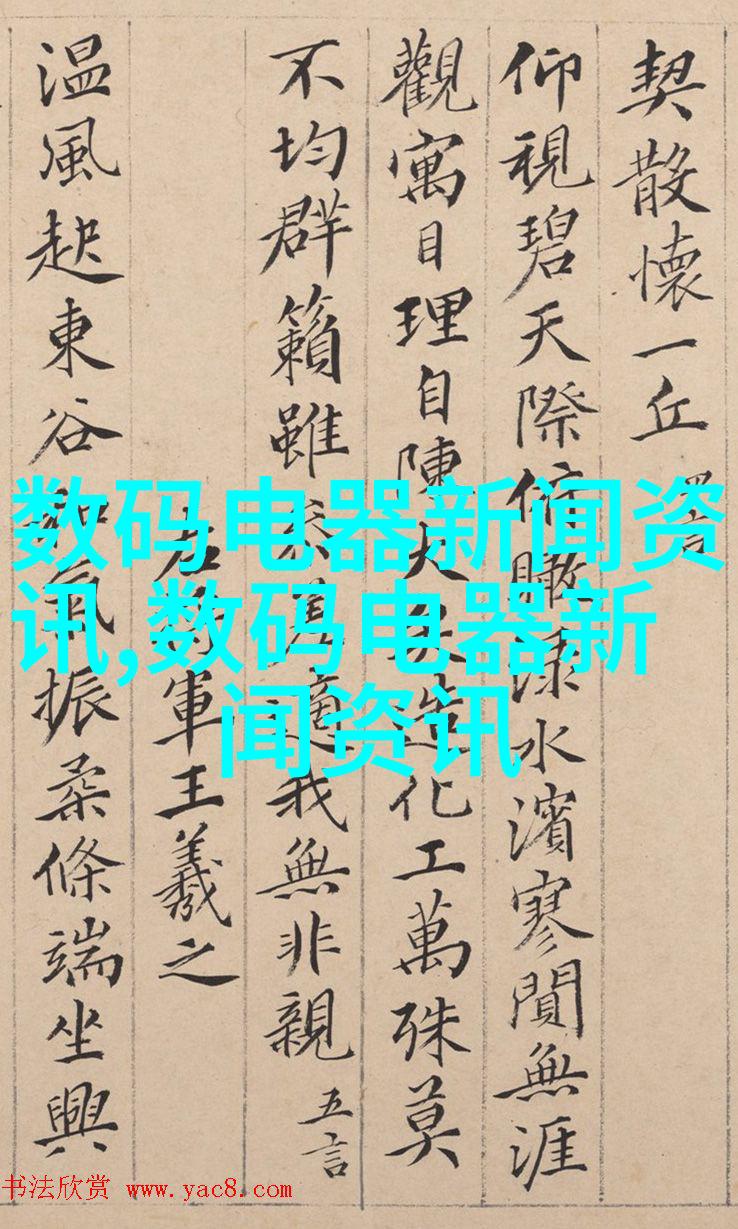 契散懷一丘 四言
仰視碧天際俯瞰淥水濱寥閴無涯
觀寓目理自陳大矣造化工萬殊莫
不均群籟雖參差適我無非親 五言
右將軍王羲之
温風起東谷和氣振柔條端坐興
数码电器新闻资
讯,数码电器新
闻资讯
书法欣赏 www.yac8.com